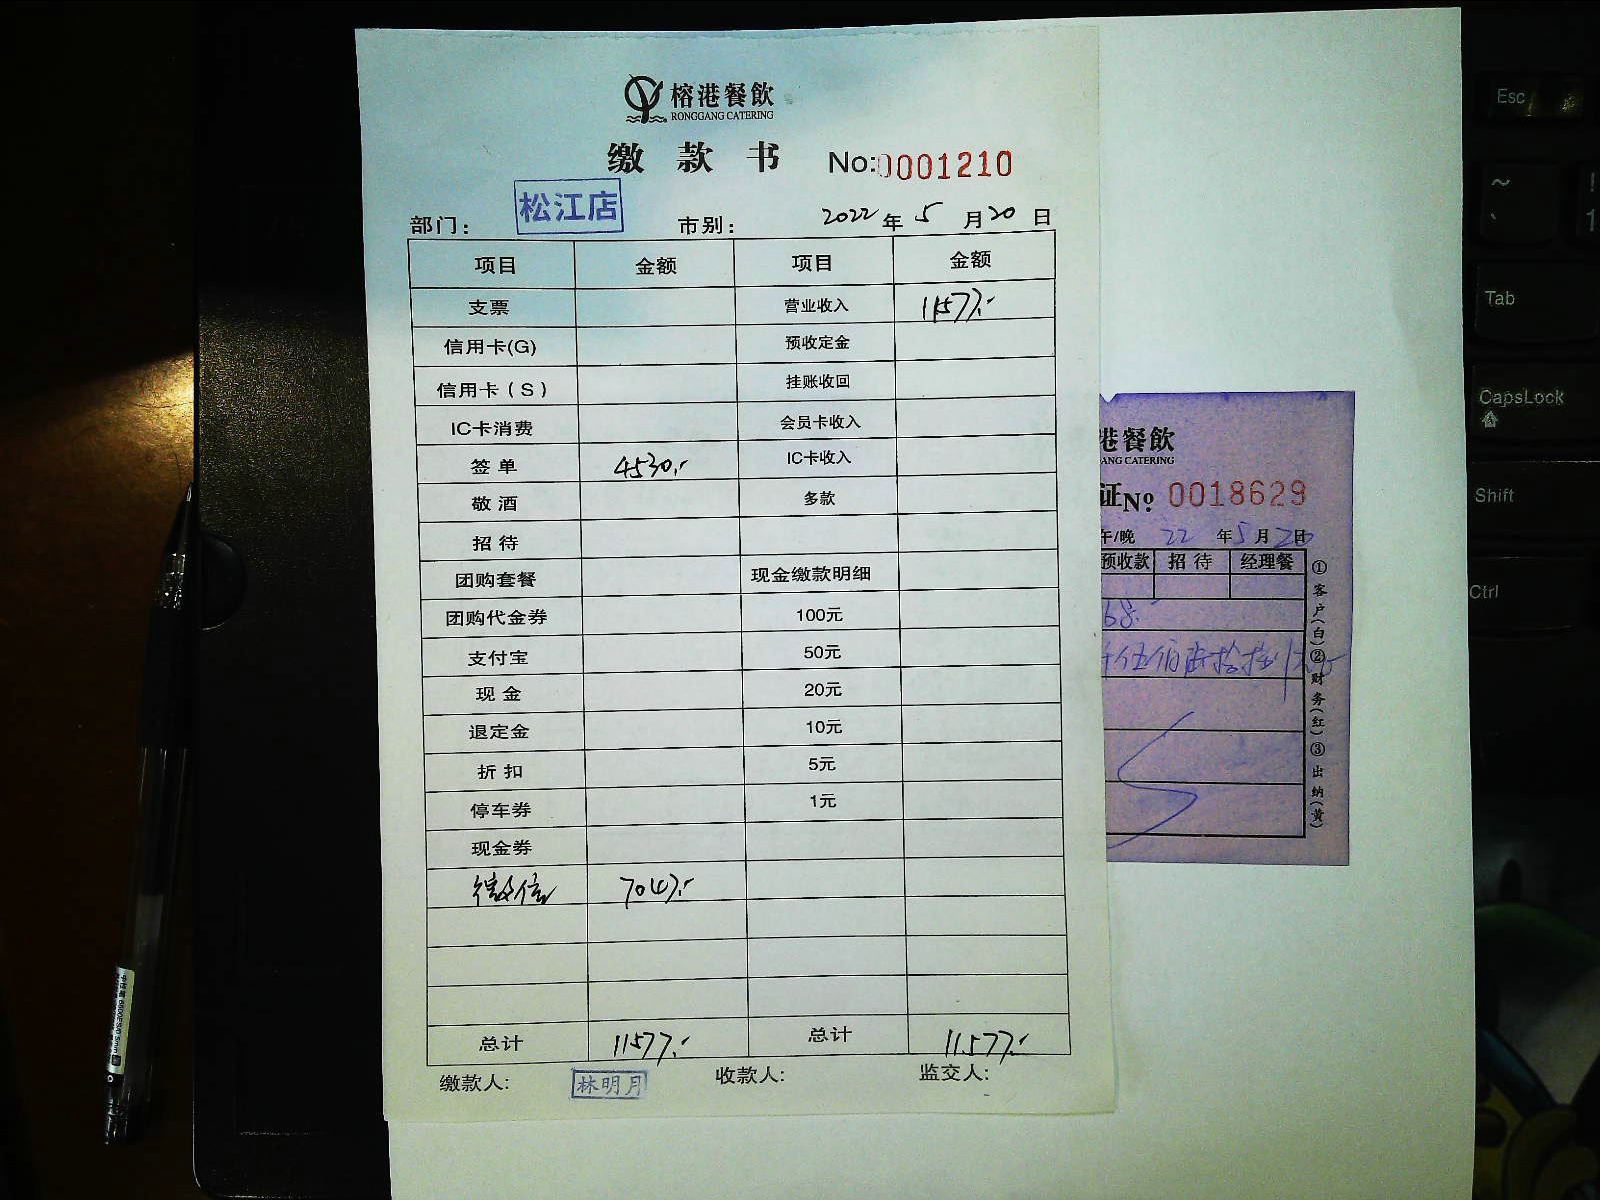 榕港餐飲
RONGGANG CATERING
缴款书 No:0001210
部门: 松江店 市别: 2022年5月20日
项目 金额 项目 金额
支票 营业收入 11577.-
信用卡(G) 预收定金
信用卡(S) 挂账收回
IC卡消费 会员卡收入
签单 4530.- IC卡收入
敬酒 多款
招待
团购套餐 现金缴款明细
团购代金券 100元
支付宝 50元
现金 20元
退定金 10元
折扣 5元
停车券 1元
现金券
微信 7047.-
总计 11577.- 总计 11577.-
缴款人: 林明月 收款人: 监交人:
港餐飲
ANG CATERING
证No 0018629
午/晚 22年5月2日
预收款 招待 经理餐
68.-
①客户(白)②财务(红)③出纳(黄)
Esc
~
!
1
Tab
CapsLock
Shift
Ctrl